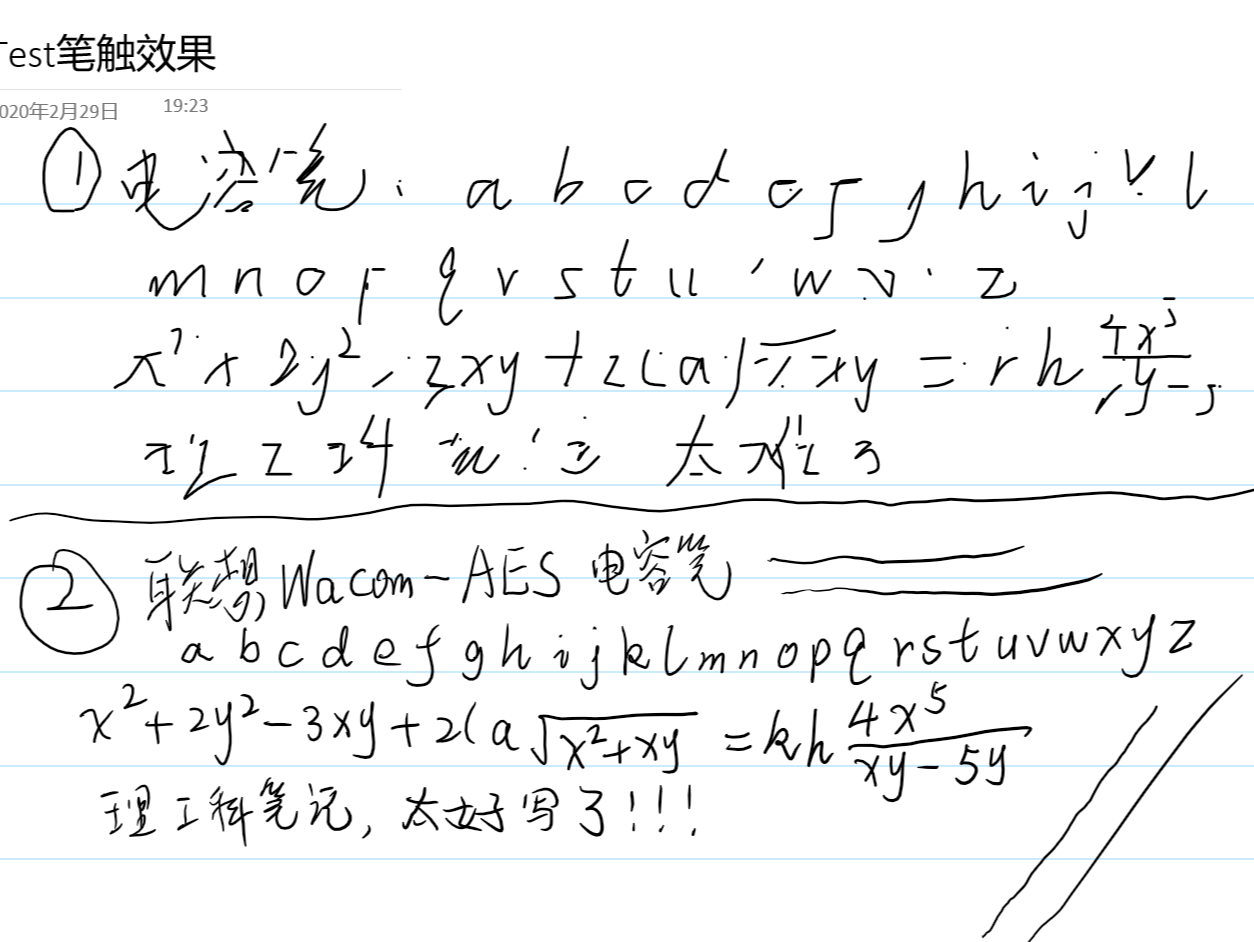 Test笔触效果
2020年2月29日 19:23
① 电容笔: a b c d e f g h i j k l
m n o p q r s t u w z
x² + 2y² - 3xy + 2(a = rh 4x⁵
理工科 太难了
② 联想Wacom-AES 电容笔
a b c d e f g h i j k l m n o p q r s t u v w x y z
x²+2y²-3xy+2(a√(x²+xy) = kh (4x⁵)/(xy-5y)
理工科笔记, 太好写了!!!